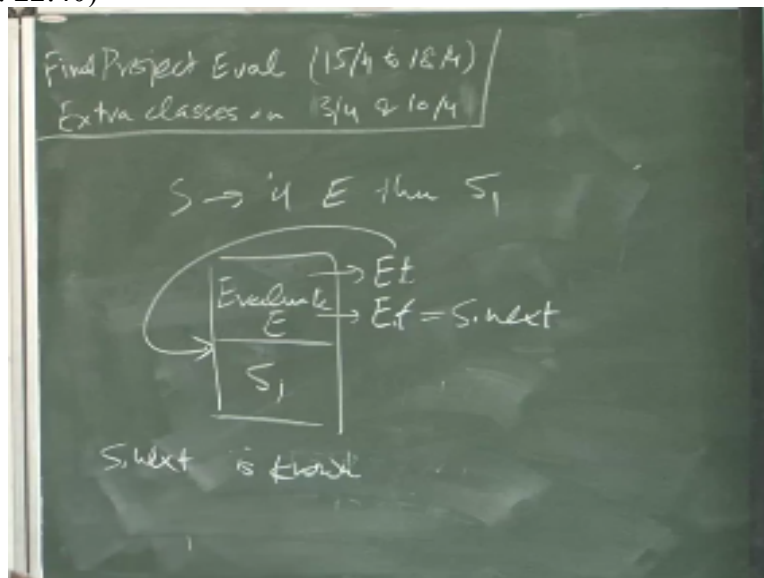 22:40)
Final Project Eval (15/4 to 18/4)
Extra classes on 3/4 & 10/4
S → if E then S₁
→ E.t
Evaluate
E → E.f = S.next
S₁
S.next is known